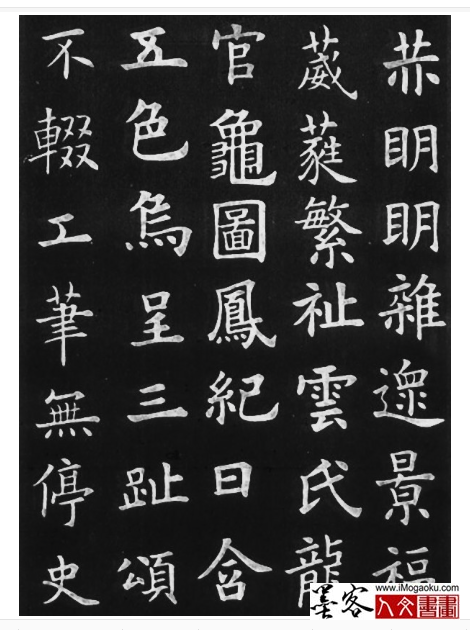 赫明明雜遝景福
葳蕤繁祉雲氏龍
官龜圖鳳紀日含
五色烏呈三趾頌
不輟工筆無停史
墨客
www.iMogaoku.com
人文書畫